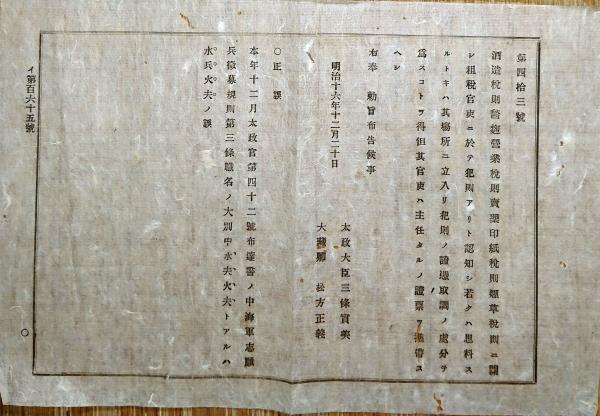 第四拾三號
酒造税則醬麴營業税則賣藥印紙税則煙草税則ニ關
シ租税官吏ニ於テ犯則アリト認知シ若クハ思料ス
ルトキハ其場所ニ立入リ犯則ノ證憑取調ノ處分ヲ
爲スコトヲ得但其官吏ハ主任タルノ證票ヲ携帶ス
ヘシ
右奉 勅旨布告候事
明治十六年十二月二十日
太政大臣三條實美
大藏卿 松方正義
〇正誤
本年十二月太政官第四十二號布達書ノ中海軍志願
兵徵募規則第三條職名ノ大別中水夫火夫トアルハ
水兵火夫ノ誤
イ第百六十五號
〇